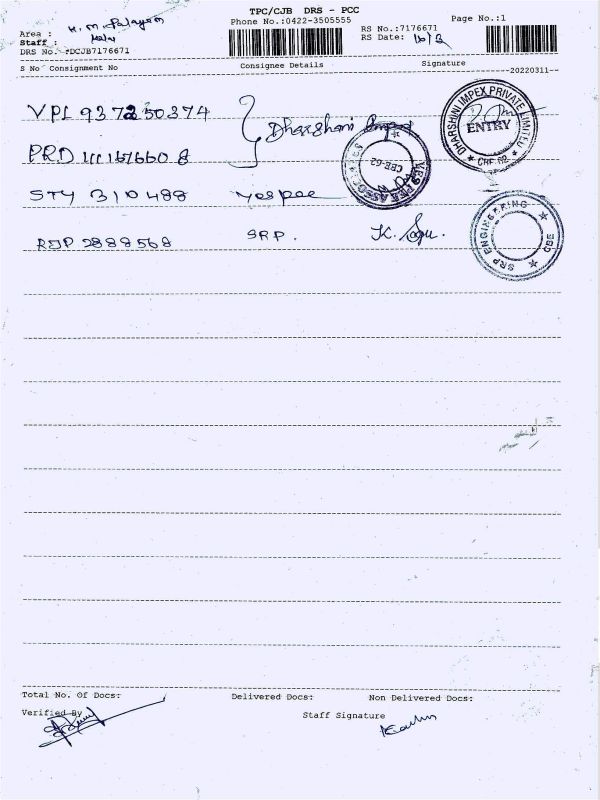 TPC/CJB DRS - PCC
Phone No.:0422-3505555
Page No.:1
Area : K.M. Palayam
Staff :
RS No.:7176671
RS Date: 16/3
DRS No. :DCJB7176671
S No Consignment No Consignee Details Signature
20220311
VPL 937250374 Dharshani Impex
DHARSHINI IMPEX PRIVATE LIMITED
ENTRY
CBE-62
PRD 111161660 8
VESPEE ASSOCIATES
CBE-62
STY 310488 Yespee
RJP 2888568 SRP. K.
SRP ENGINEERING CBE
Total No. Of Docs: Delivered Docs: Non Delivered Docs:
Verified By
Staff Signature